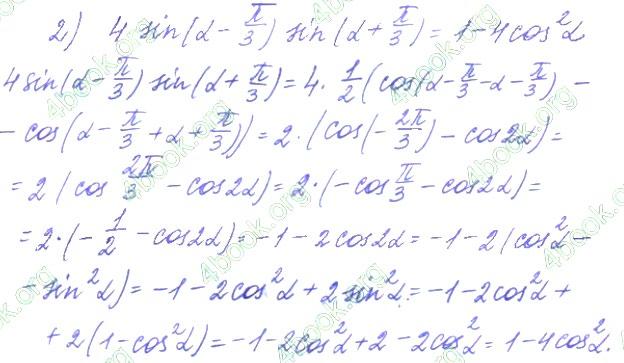 2) 4 sin(α - π/3) sin(α + π/3) = 1 - 4cos²α
4sin(α - π/3) sin(α + π/3) = 4 · 1/2 (cos(α - π/3 - α - π/3) -
- cos(α - π/3 + α + π/3)) = 2 · (cos(-2π/3) - cos2α) =
= 2 (cos 2π/3 - cos2α) = 2 · (-cos π/3 - cos2α) =
= 2 · (-1/2 - cos2α) = -1 - 2cos2α = -1 - 2(cos²α -
- sin²α) = -1 - 2cos²α + 2sin²α = -1 - 2cos²α +
+ 2(1 - cos²α) = -1 - 2cos²α + 2 - 2cos² = 1 - 4cos²α.
4book.org